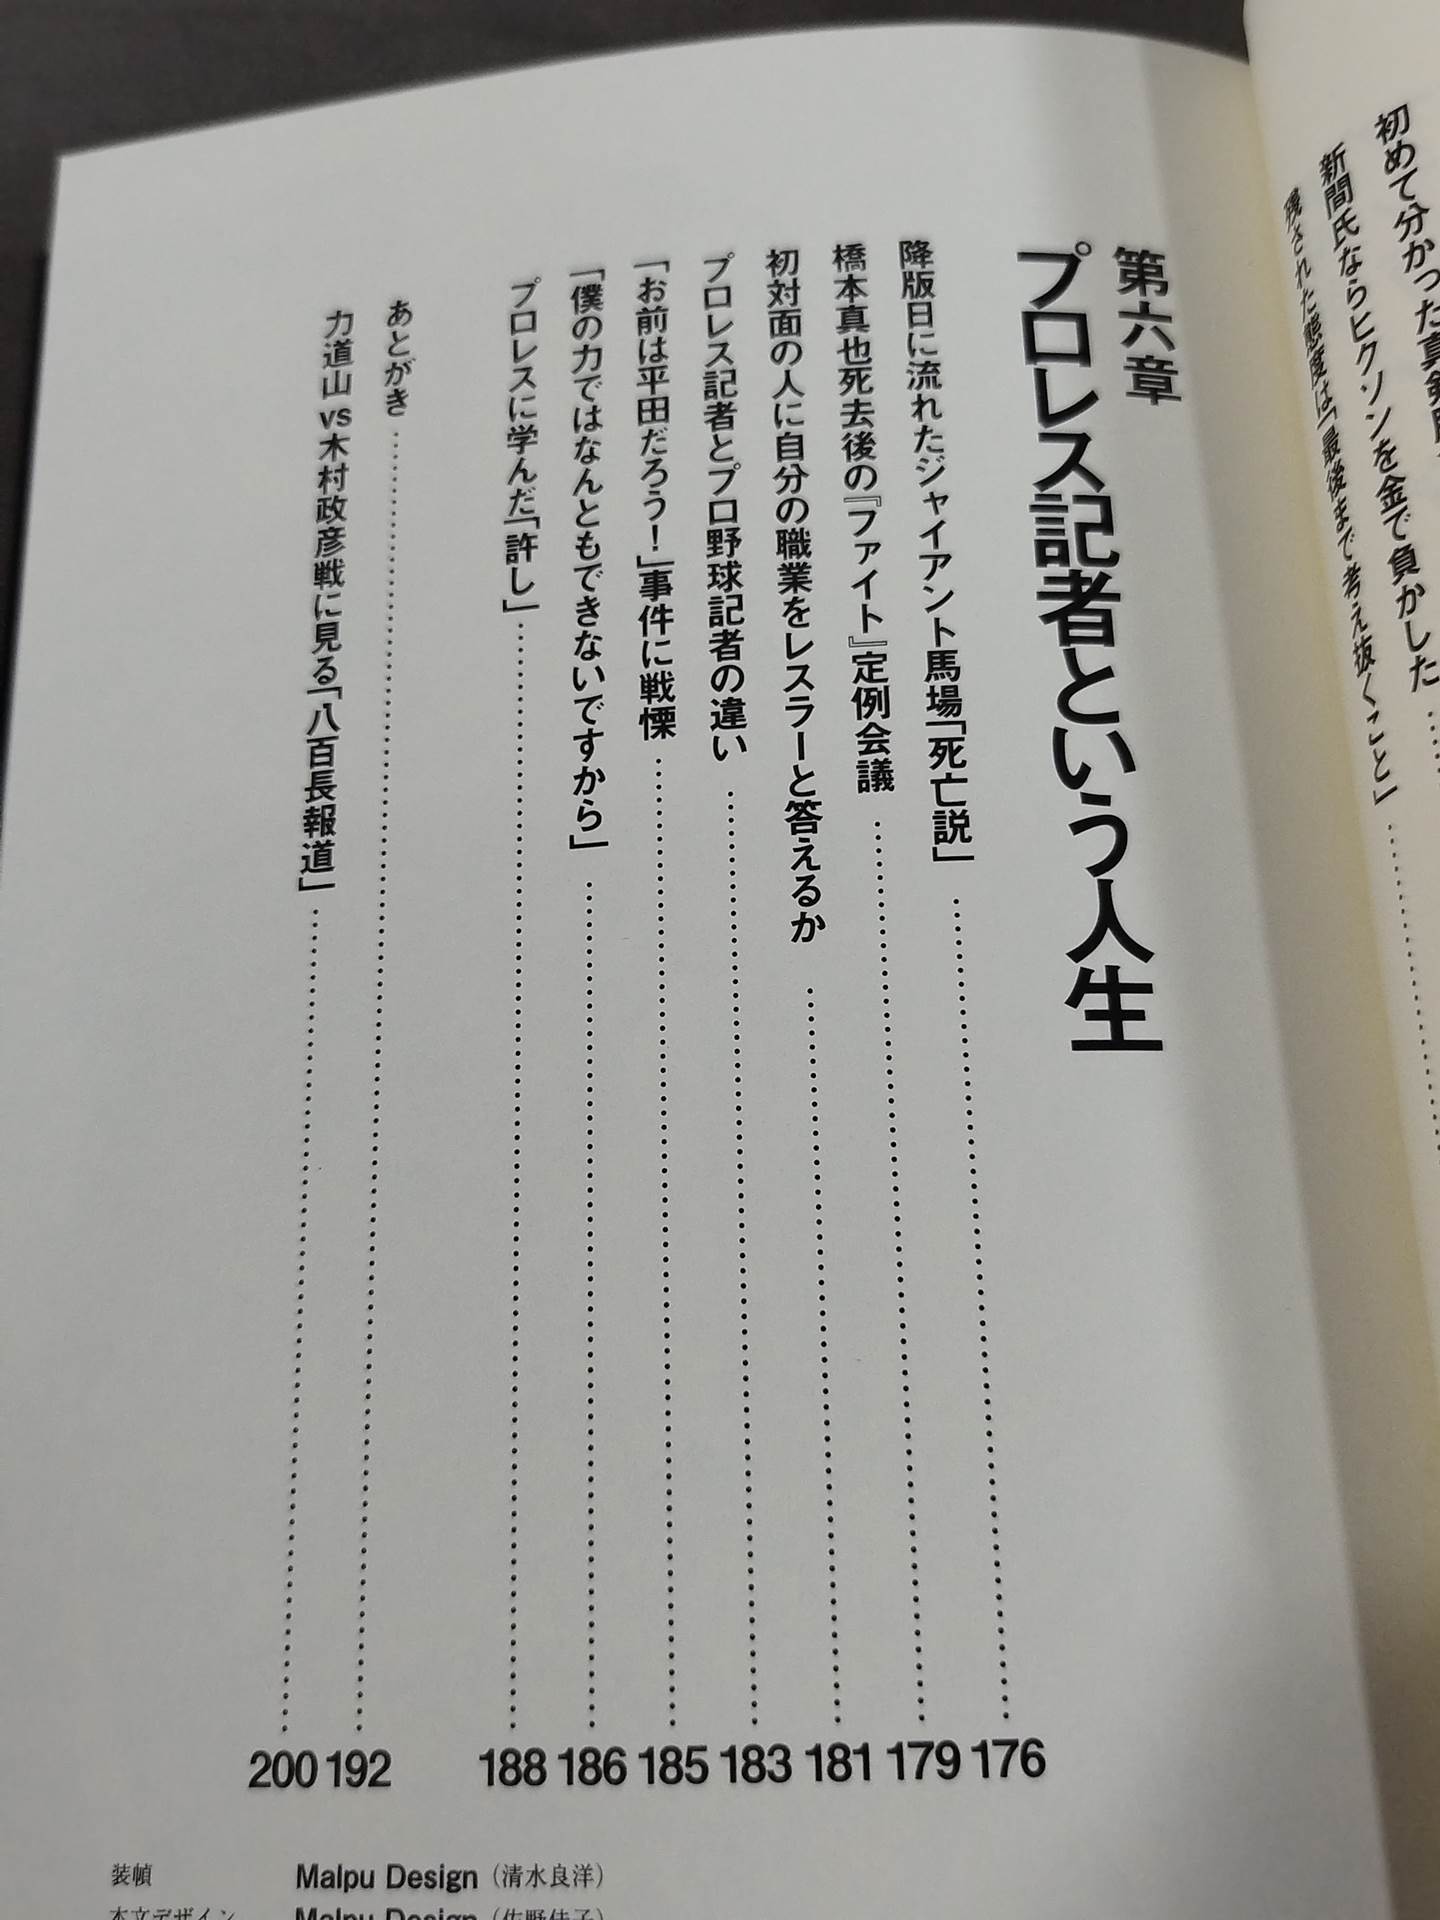 初めて分かった真剣勝
新間氏ならヒクソンを金で負かした
残された態度は「最後まで考え抜くこと」
第六章
プロレス記者という人生
降版日に流れたジャイアント馬場「死亡説」 176
橋本真也死去後の『ファイト』定例会議 179
初対面の人に自分の職業をレスラーと答えるか 181
プロレス記者とプロ野球記者の違い 183
「お前は平田だろう！」事件に戦慄 185
「僕の力ではなんともできないですから」 186
プロレスに学んだ「許し」 188
あとがき 192
力道山vs木村政彦戦に見る「八百長報道」 200
装幀 Malpu Design（清水良洋）
本文デザイン Malpu Design（佐野佳子）